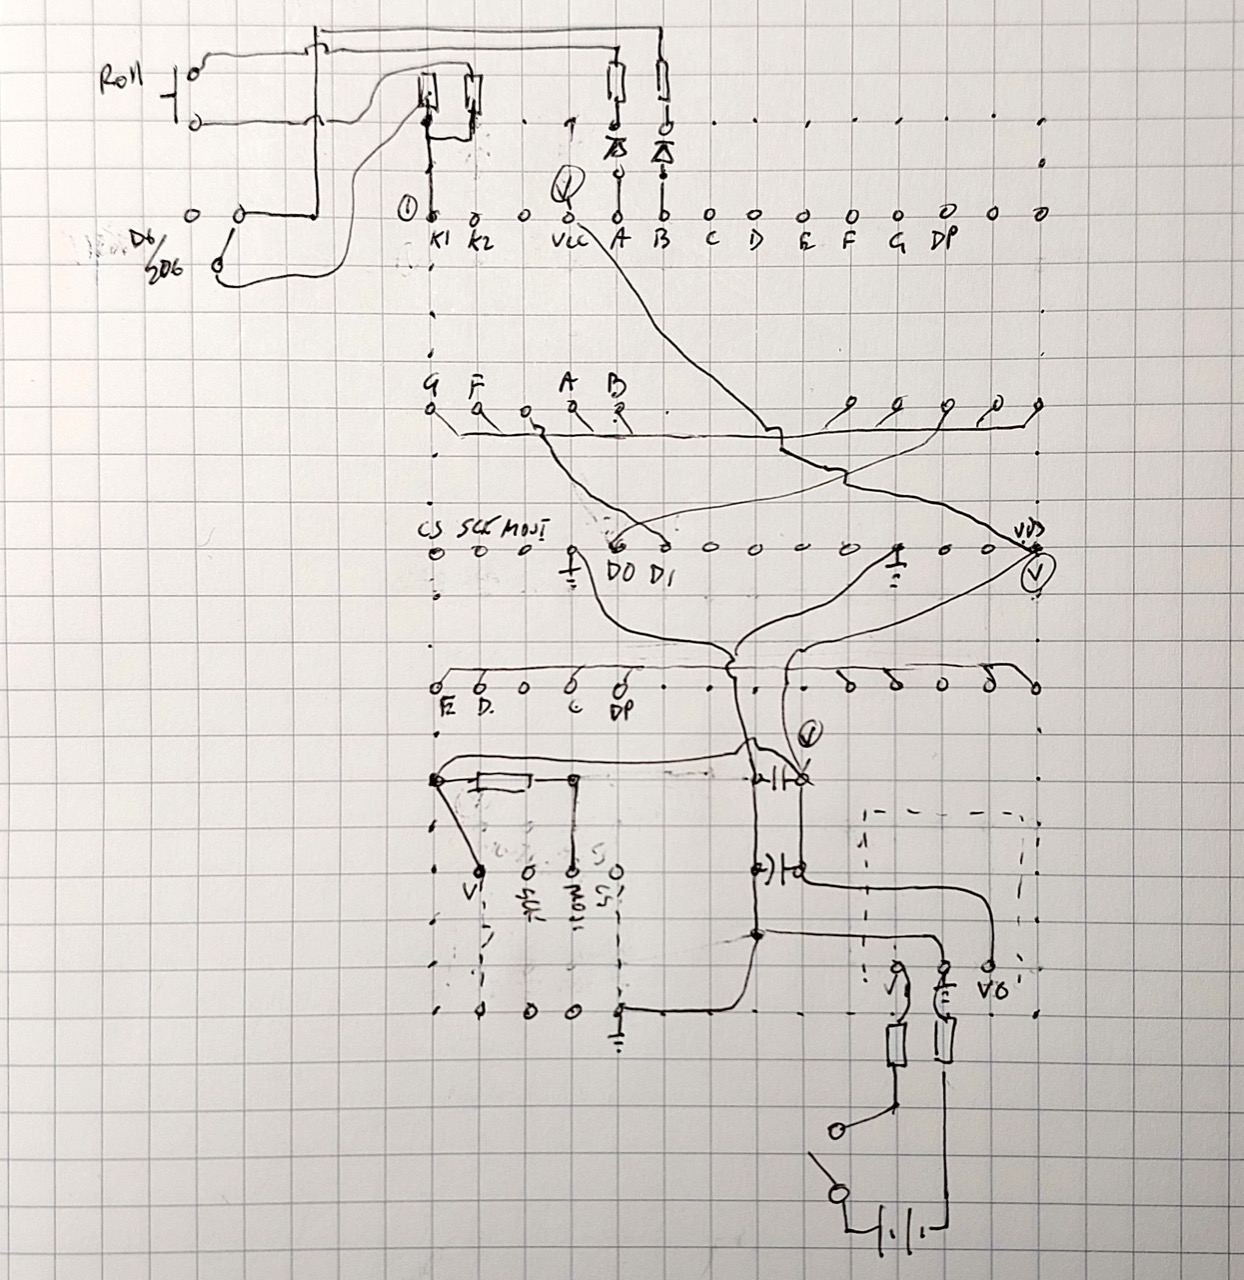 Roll
V
D6/
2D6
1
K1 K2 VCC A B C D E F G DP
G F A B
CS SCK MOSI VDD
D0 D1
V
E D C DP
V
V SCK MOSI CS
V V0